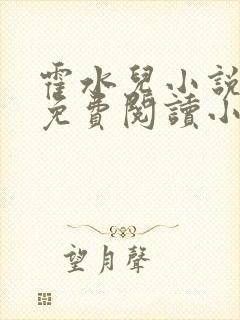 霍水兒小說
免費閱讀小
望月聲